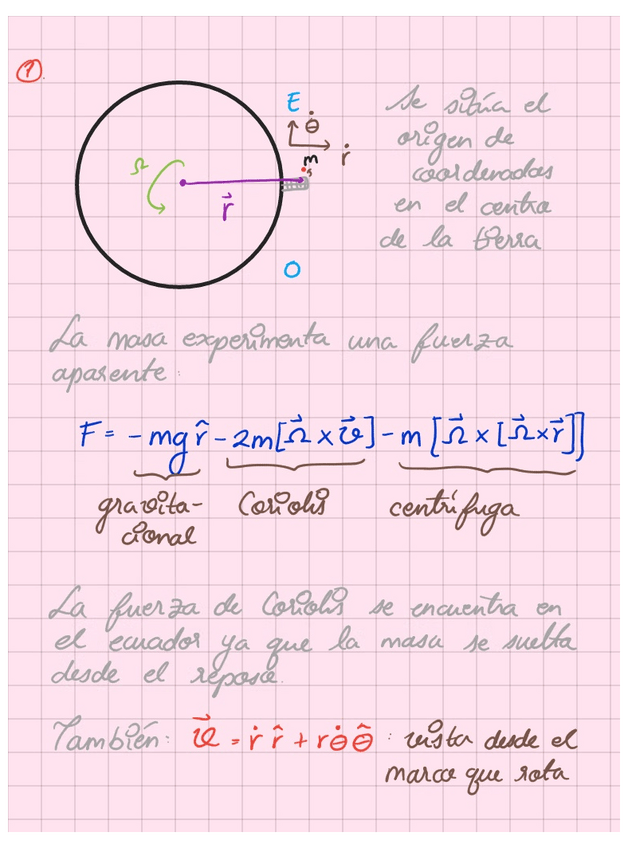 1.
E
θ̇
ṙ
m
s
Ω
r⃗
O
Se sitúa el
origen de
coordenadas
en el centro
de la tierra
La masa experimenta una fuerza
aparente:
F = -mg r̂ - 2m[Ω⃗ × v⃗] - m[Ω⃗ × [Ω⃗ × r⃗]]
gravita- Coriolis centrífuga
cional
La fuerza de Coriolis se encuentra en
el ecuador ya que la masa se suelta
desde el reposo.
También: v⃗ = ṙ r̂ + r θ̇ θ̂ : vista desde el
marco que rota